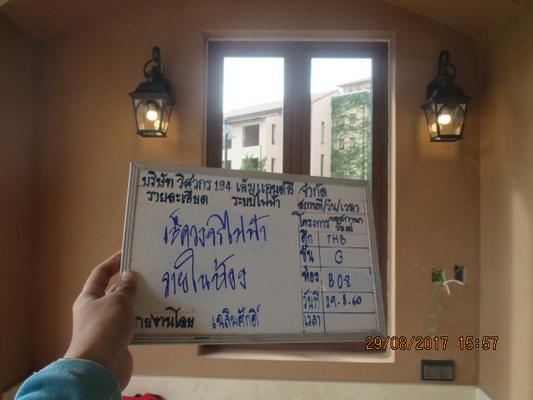 บริษัท วิศวกร 194 เอ็ม แอนด์ อี จำกัด
รายละเอียด ระบบไฟฟ้า สถานที่/วัน/เวลา
เช็ควงจรไฟฟ้า
ภายในห้อง
โครงการ
ตึก THB
ชั้น G
ห้อง B08
วันที่ 29.8.60
เวลา
รายงานโดย เฉลิมศักดิ์
29/08/2017 15:57